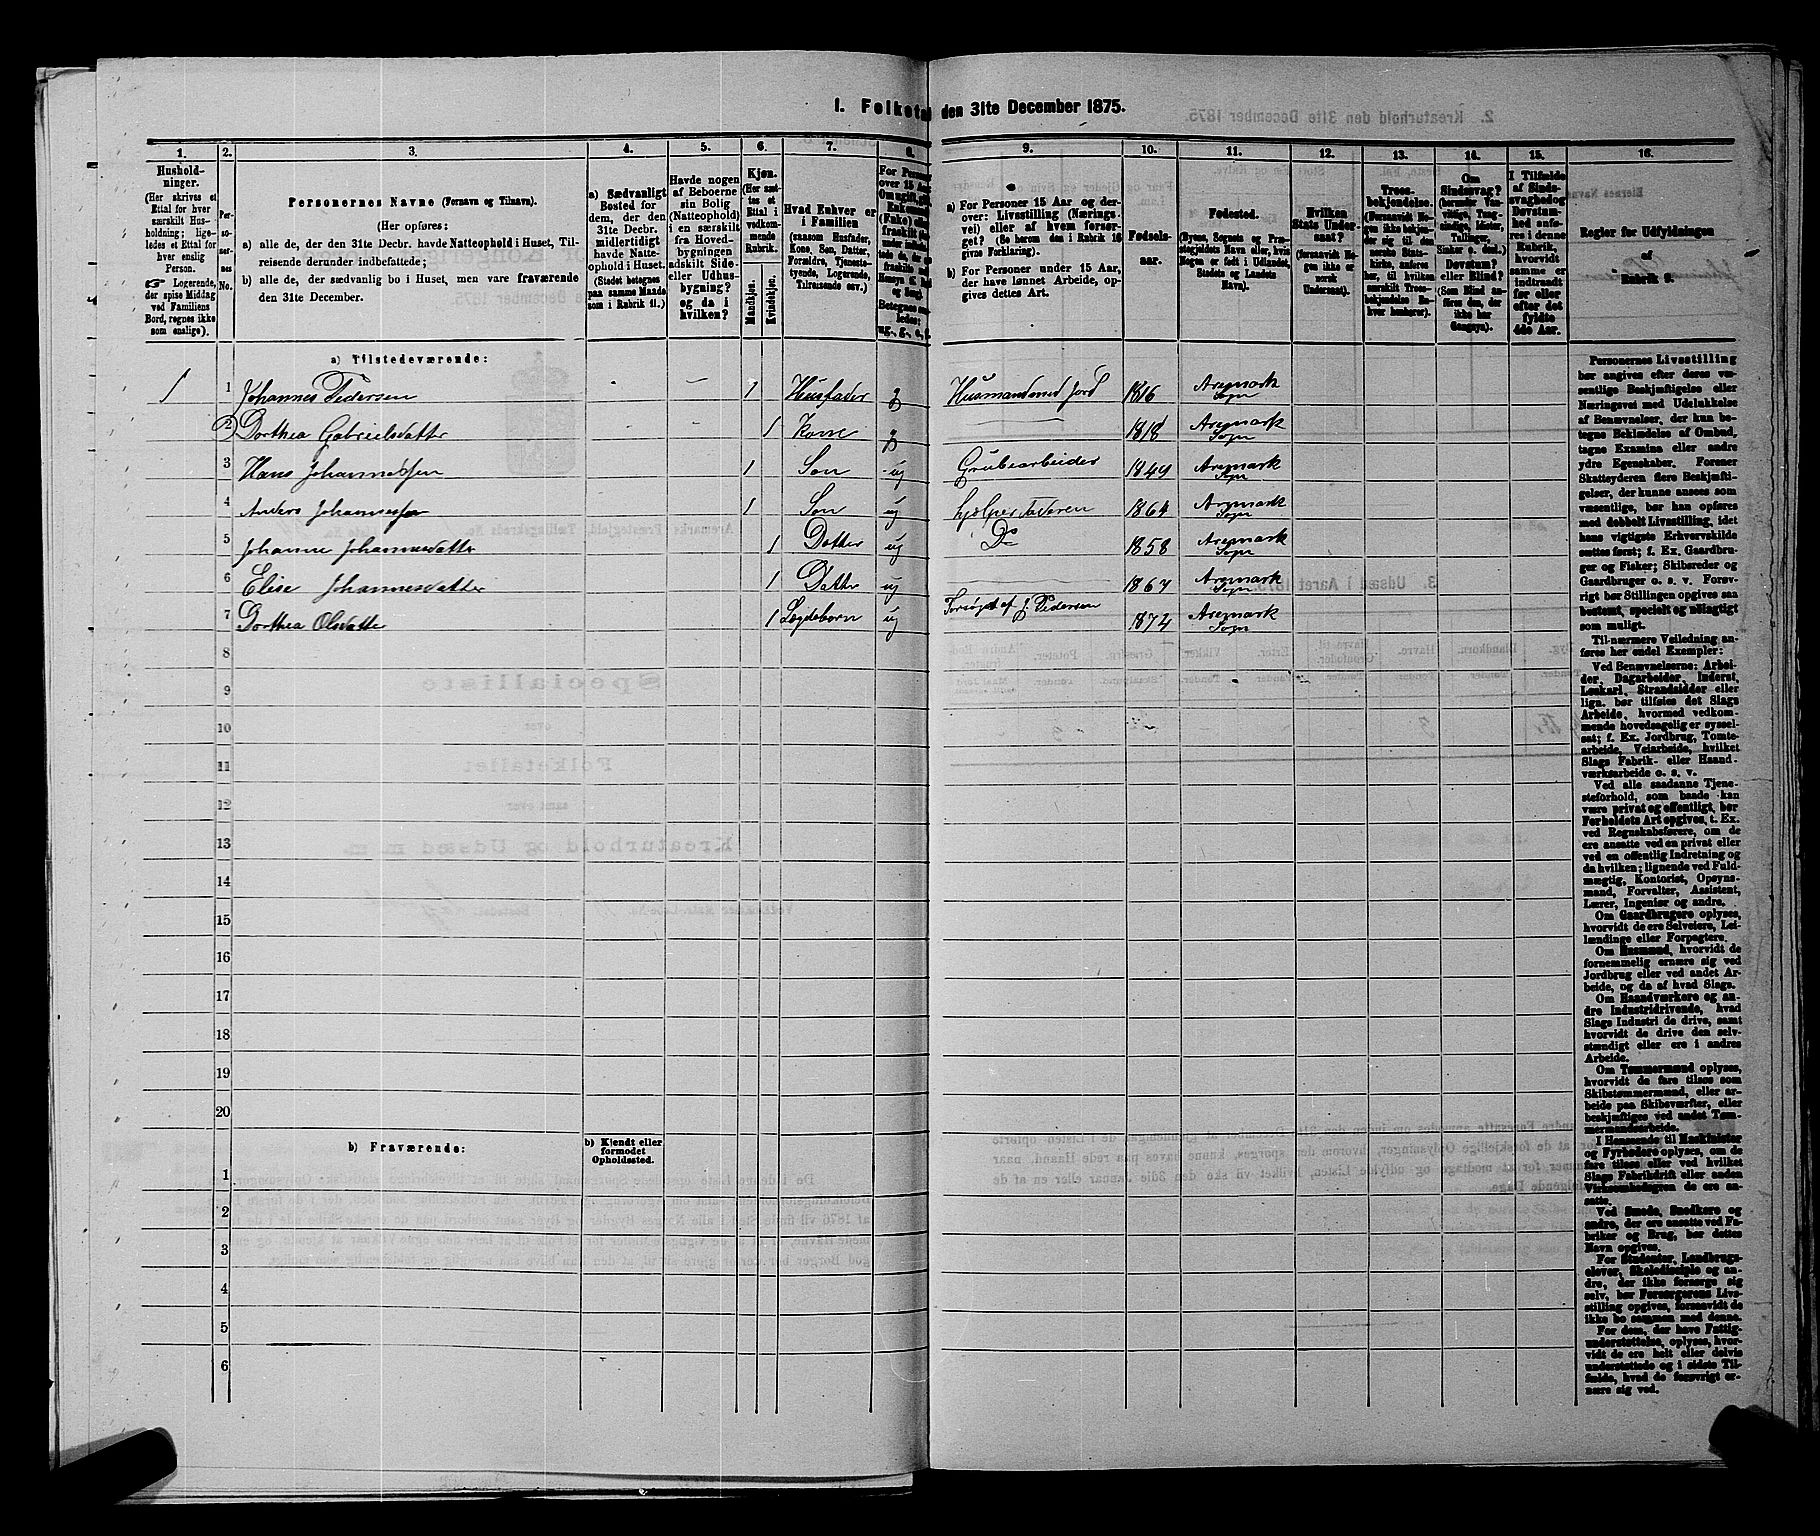 1. Folketal den 31te December 1875.
1. 2. 3. 4. 5. 6. 7. 8. 9. 10. 11. 12. 13. 14. 15. 16.
Hushold-
ninger.
(Her skrives et
Ettal for hver
særskilt Hus-
holdning; lige-
ledes et Ettal for
hver enslig
Person.
☞ Logerende,
der spise Middag
ved Familiens
Bord, regnes ikke
som enslige).
Per-
so-
ner-
nes
No.
Personernes Navne (Fornavn og Tilnavn).
(Her opføres:
a) alle de, der den 31te Decbr. havde Natteophold i Huset, Til-
reisende derunder indbefattede;
b) alle de, der sædvanlig bo i Huset, men vare fraværende
den 31te December.
a) Sædvanligt
Bosted for
dem, der den
31te Decbr.
midlertidigt
havde Natte-
ophold i Huset.
(Stedet betegnes
paa samme Maade
som i Rubrik 11.)
Havde nogen
af Beboerne
sin Bolig
(Natteophold)
i en særskilt
fra Hoved-
bygningen
adskilt Side-
eller Udhus-
bygning?
og da i
hvilken?
Kjøn.
(Her sæt-
tes et
Ettal i
vedkom-
mende
Rubrik.
Mandkjøn.
Kvindekjøn.
Hvad Enhver er
i Familien
(saasom Husfader,
Kone, Søn, Datter,
Forældre, Tjeneste-
tyende, Logerende,
Tilreisende osv.)
a) For Personer 15 Aar og der-
over: Livsstilling (Nærings-
vei) eller af hvem forsør-
get? (Se herom den i Rubrik 16
givne Forklaring).
b) For Personer under 15 Aar,
der have lønnet Arbeide, op-
gives dettes Art.
Fødsels-
aar.
Fødested.
(Byens, Sognets og Præ-
stegjeldets Navn eller, hvis
Nogen er født i Udlandet,
Stedets og Landets
Navn).
Hvilken
Stats Under-
saat?
(forsaavidt No-
gen ikke er
norsk
Undersaat).
Troes-
bekjendelse.
(Forsaavidt No-
gen ikke bekjen-
der sig til den
norske Stats-
kirke, anføres
her, til hvilken
særskilt Troes-
bekjendelse En-
hver henhører).
Om
Sindssvag?
(herunder Van-
vittige, Tung-
sindige, Idioter,
Tullinger,
Sinker o. desl.)
Døvstum?
eller Blind?
(Som Blind an-
føres den, der
ikke har
Gangsyn).
I Tilfælde
af Sinds-
svaghed og
Døvstum-
hed anfø-
res i denne
Rubrik,
hvorvidt
samme er
indtraadt
før eller
efter det
fyldte
4de Aar.
Regler for Udfyldningen
af
Rubrik 9.
a) Tilstedeværende:
1 1 Johannes Pedersen - - 1 Husfader g Husmand med Jord 1816 Aremark Sogn
2 Dorthea Gabrielsdatter 1 Kone g 1818 Aremark Sogn
3 Hans Johannessen 1 Søn ug Grubearbeider 1849 Aremark Sogn
4 Anders Johannessen 1 Søn ug hjælper Faderen 1864 Aremark Sogn
5 Johanne Johannesdatter 1 Datter ug Do 1858 Aremark Sogn
6 Elise Johannesdatter 1 Datter ug 1867 Aremark Sogn
7 Dorthea Olsdatter 1 Lægdebarn ug Forsørget af J. Pedersen 1874 Aremark Sogn
8
9
10
11
12
13
14
15
16
17
18
19
20
b) Fraværende:
b) Kjendt eller
formodet
Opholdssted.
1
2
3
4
5
6
Personernes Livsstilling
bør angives efter deres væ-
sentlige Beskjæftigelse eller
Næringsvei med Udelukkelse
af Benævnelser, der kun be-
tegne Beklædelse af Ombud,
tagne Examina eller andre
ydre Egenskaber. Forener
Skatteyderen flere Beskjæfti-
gelser, der kunne ansees som
væsentlige, bør han opføres
med dobbelt Livsstilling, idet
hans vigtigste Erhvervskilde
sættes først; f. Ex. Gaardbru-
ger og Fisker; Skibsreder og
Gaardbruger o. s. v. Forøv-
rigt bør Stillingen opgives saa
bestemt, specielt og nøiagtigt
som muligt.
Til nærmere Veiledning an-
føres her endel Exempler:
Ved Benævnelserne: Arbei-
der, Dagarbeider, Inderst,
Løskarl, Strandsidder eller
lign. bør tilføies det Slags
Arbeide, hvormed vedkom-
mende hovedsagelig er syssel-
sat; f. Ex. Jordbrug, Tomte-
arbeide, Veiarbeide, hvilket
Slags Fabrik- eller Haand-
værksarbeide o. s. v.
Ved alle saadanne Tjene-
steforhold, som baade kan
være privat og offentligt, bør
Forholdets Art opgives, t. Ex.
ved Regnskabsførere, om de
ere ansatte ved en privat eller
ved en offentlig Indretning og
da hvilken; lignende ved Fuld-
mægtig, Kontorist, Opsyns-
mand, Forvalter, Assistent,
Lærer, Ingeniør og andre.
Om Gaardbrugere oplyses,
hvorvidt de ere Selveiere, Lei-
lændinge eller Forpagtere.
Om Husmænd, hvorvidt de
fornemmelig ernære sig ved
Jordbrug eller ved andet Ar-
beide, og da af hvad Slags.
Om Haandværkere og an-
dre Industridrivende, hvad
Slags Industri de drive, samt
hvorvidt de drive den selv-
stændigt eller ere i andres
Arbeide.
Om Tømmermænd oplyses,
hvorvidt de fare tilsøs som
Skibstømmermænd, eller ar-
beide paa Skibsværfter, eller
beskjæftiges ved andet Tøm-
mermandsarbeide.
I Henseende til Maskinister
og Fyrbødere oplyses, om de
fare tilsøs eller ved hvilket
Slags Fabrikdrift eller anden
Virksomhed de ere an-
satte.
Ved Smede, Snedkere og
andre, der ere ansatte ved Fa-
briker og Brug, bør dettes
Navn opgives.
For Studenter, Landbrugs-
elever, Skoledisciple og an-
dre, der ikke forsørge sig
selv, bør Forsørgerens Livs-
stilling opgives, forsaavidt de
ikke bo sammen med denne.
For dem, der have Fattig-
understøttelse, oplyses, hvor-
vidt de ere helt eller delvis
understøttede og i sidste Til-
fælde, hvad de forøvrigt er-
nære sig ved.